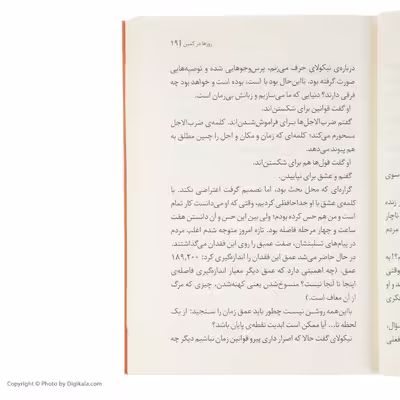 روزها در کمین | ۱۹
درباره‌ی نیکولای حرف می‌زنم، پرس‌وجوهایی شده و توصیه‌هایی
صورت گرفته بود. بااین‌حال بود با است، بوده است و خواهد بود چه
فرقی دارند؟ دنیایی که ما می‌سازیم و زبانش بی‌زمان است.
او گفت قوانین برای شکستن‌اند.
گفتم ضرب‌الاجل‌ها برای فراموش‌شدن‌اند. کلمه‌ی ضرب‌الاجل
مسحورم می‌کند؛ کلمه‌ای که زمان و مکان و اجل را چنین مطلق به
هم پیوند می‌دهد.
او گفت قول‌ها هم برای شکستن‌اند.
گفتم و عشق برای نپاییدن.
گزاره‌ای که محل بحث بود، اما تصمیم گرفت اعتراضی نکند. با
کلمه‌ی عشق با او خداحافظی کردیم، وقتی که او می‌دانست کار تمام
است و من هم حس کرده بودم؛ ولی بین این حس و آن دانستن هفت
ساعت و چهار مرحله فاصله بود. تازه امروز متوجه شدم اغلب مردم
در پیام‌های تسلیتشان، صفت عمیق را روی این فقدان می‌گذاشتند.
در حال حاضر می‌شد عمق این فقدان را اندازه‌گیری کرد: ۱۸۹,۲۰۰
عمق. (چه اهمیتی دارد که عمق دیگر معیار اندازه‌گیری فاصله‌ی
اینجا تا آنجا نیست؟ منسوخ‌شدن یعنی کهنه‌شدن، چیزی که مرگ
از آن معاف است.)
بااین‌همه روشن نیست چطور باید عمق زمان را سنجید: از یک
لحظه تا... آیا ممکن است ابدیت نقطه‌ی پایان باشد؟
نیکولای گفت حالا که اصرار داری پیرو قوانین زمان نباشیم دیگر چه
سوی
زنده
ناچار
مردم
سؤال،
فعلی
Copyright © Photo by Digikala.com